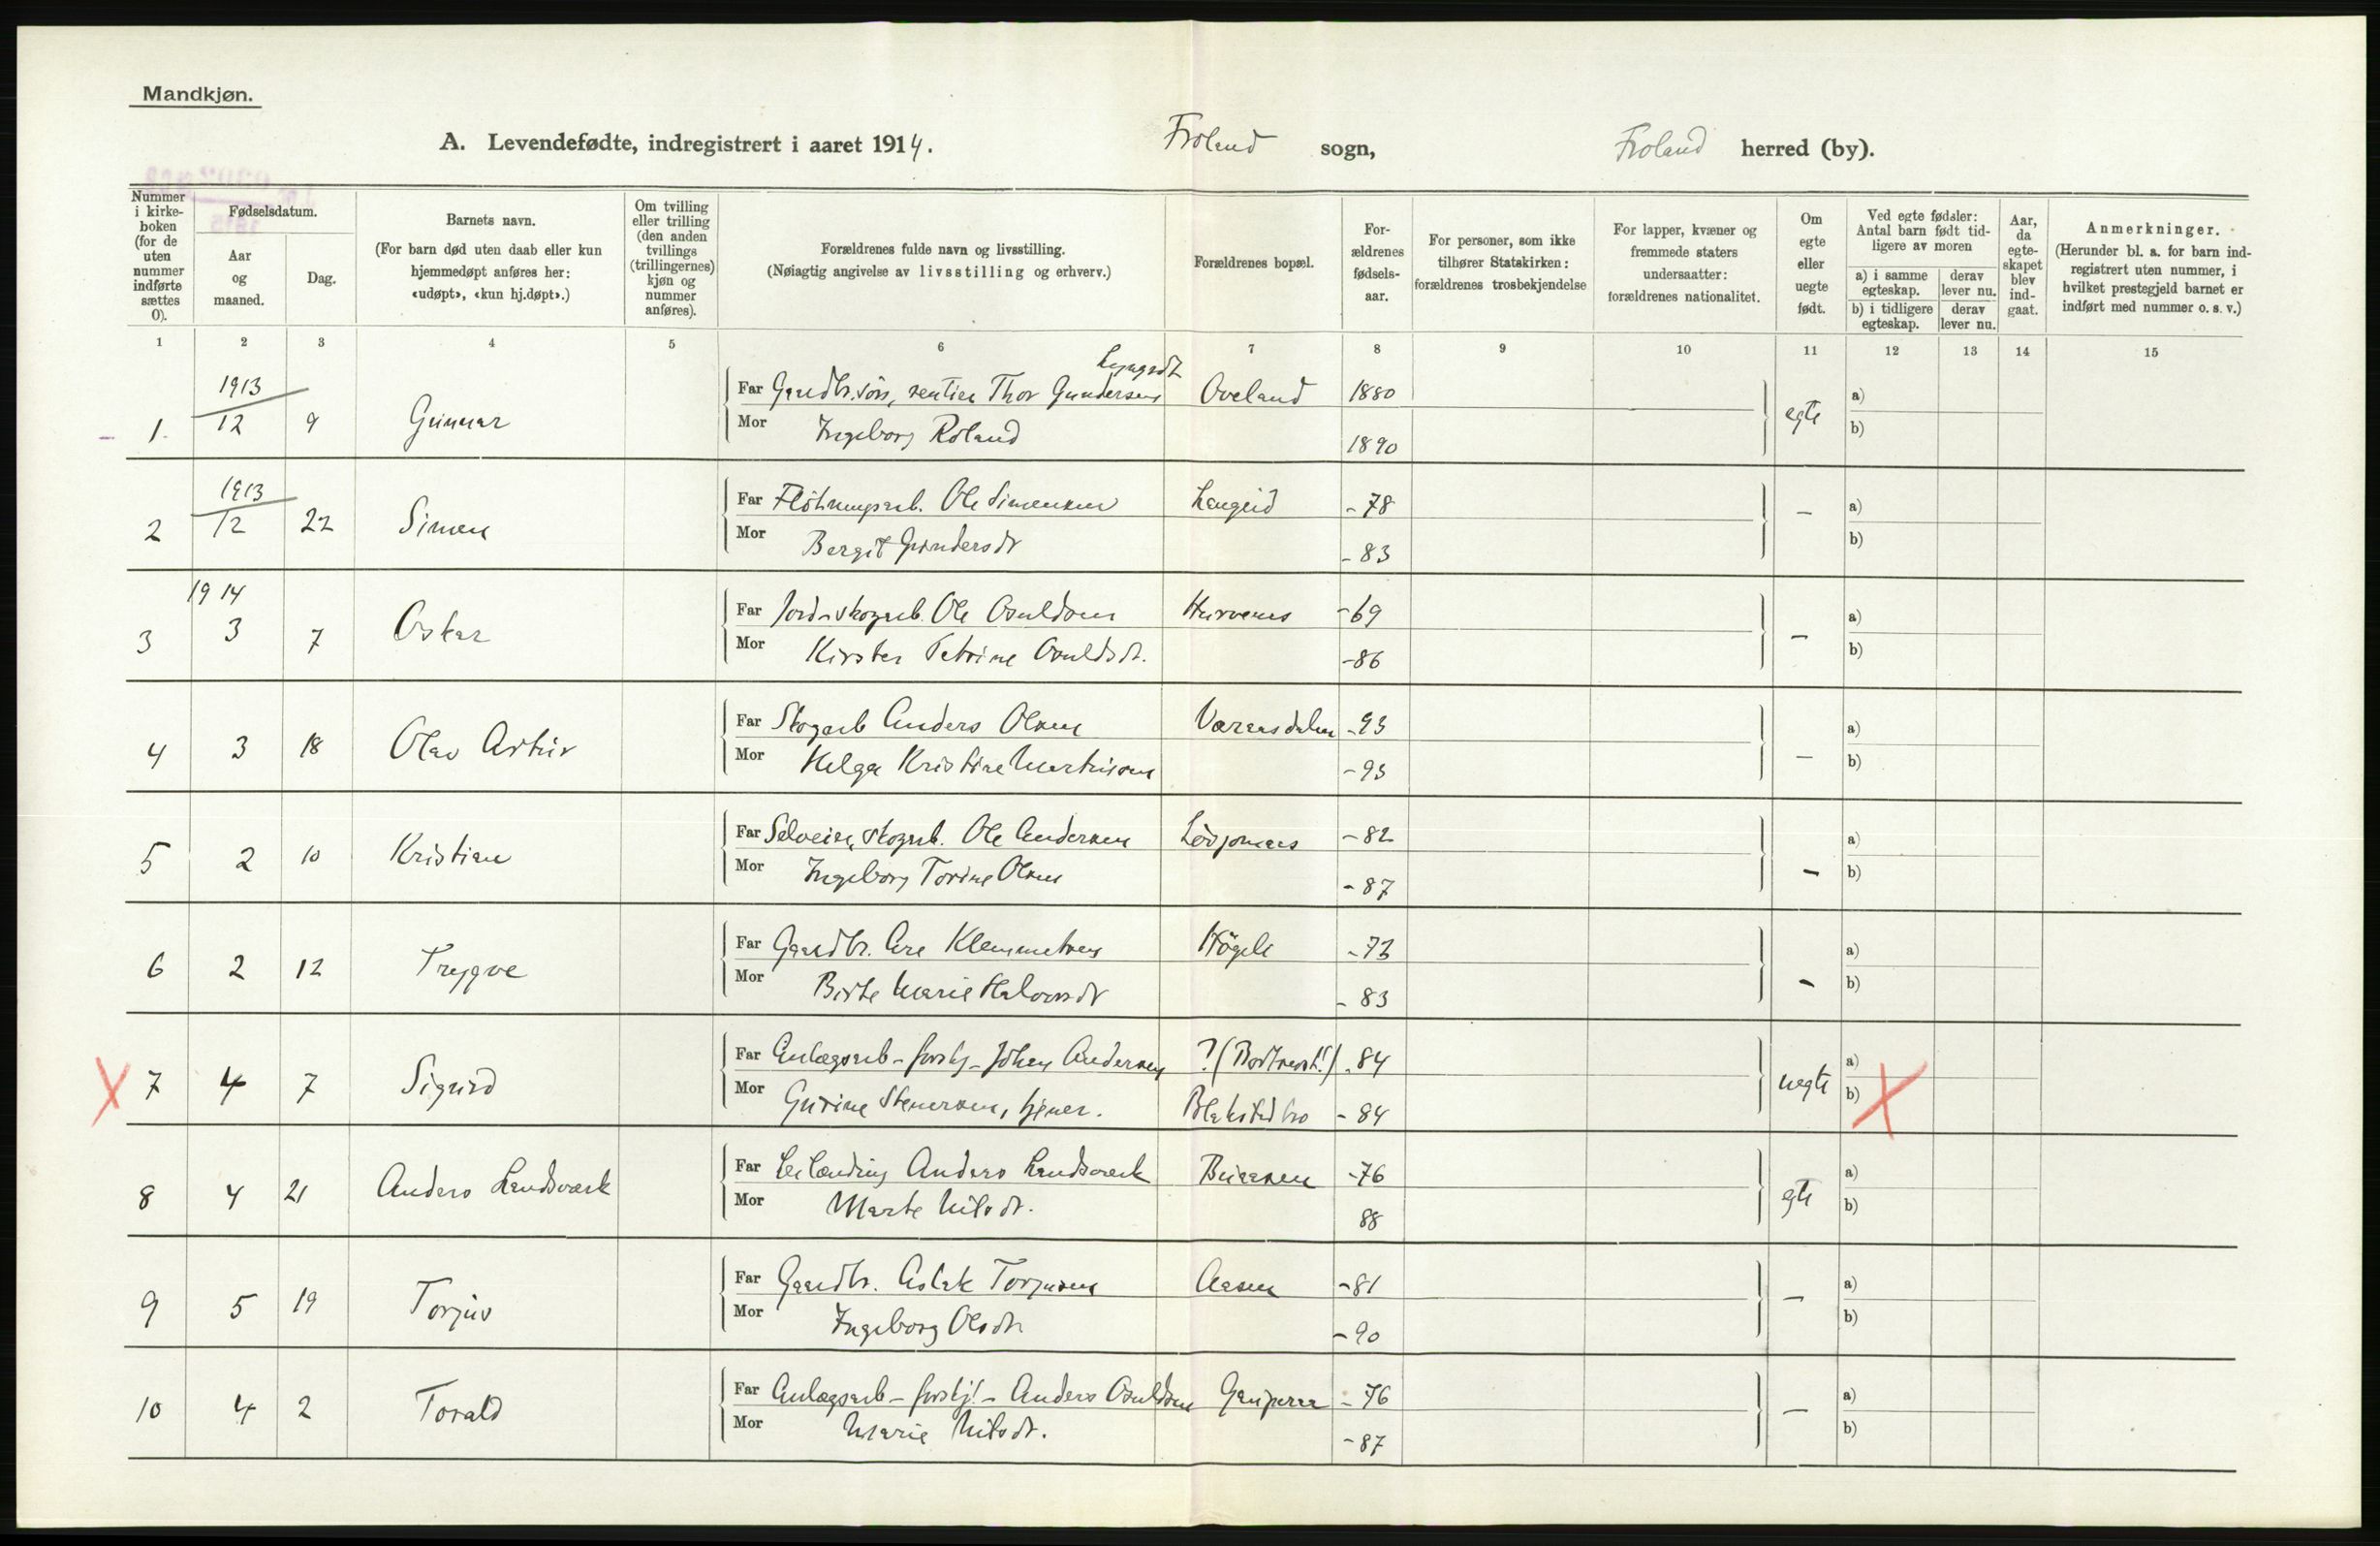 Mandkjøn.
A. Levendefødte, indregistrert i aaret 1914. Froland sogn, Froland herred (by).
Nummer i kirkeboken (for de uten nummer indførte sættes 0).
Fødselsdatum.
Aar og maaned.
Dag.
Barnets navn.
(For barn død uten daab eller kun hjemmedøpt anføres her: «udøpt», «kun hj.døpt».)
Om tvilling eller trilling (den anden tvillings (trillingernes) kjøn og nummer anføres).
Forældrenes fulde navn og livsstilling.
(Nøiagtig angivelse av livsstilling og erhverv.)
Forældrenes bopæl.
Forældrenes fødselsaar.
For personer, som ikke tilhører Statskirken: forældrenes trosbekjendelse
For lapper, kvæner og fremmede staters undersaatter: forældrenes nationalitet.
Om egte eller uegte født.
Ved egte fødsler: Antal barn født tidligere av moren
a) i samme egteskap.
derav lever nu.
b) i tidligere egteskap.
derav lever nu.
Aar, da egteskapet blev indgaat.
Anmerkninger.
(Herunder bl. a. for barn indregistrert uten nummer, i hvilket prestegjeld barnet er indført med nummer o. s. v.)
1 2 3 4 5 6 7 8 9 10 11 12 13 14 15
1. 1913 12 9 Gunnar Far Gaardbr.søn, rentier Thor Gundersen Oveland 1880 egte a)
Mor Ingeborg Roland 1890 b)
2 1913 12 22 Simen Far Fløtningsarb. Ole Simensen Langeid -78 - a)
Mor Bergit Gundersdt -83 b)
3 1914 3 7 Oskar Far Jord-skogarb. Ole Osuldsen Hurvenes -69 - a)
Mor Kirsten Petrine Osuldsdt. -86 b)
4 3 18 Olav Artur Far Skogarb Anders Olsen -93 - a)
Mor Helga Kristine Martinsen -93 b)
5 2 10 Kristian Far Selveier, skogarb. Ole Andersen -82 - a)
Mor Ingeborg Torine Olsen -87 b)
6 2 12 Trygve Far Gaardbr. Are Klemmetsen -73 - a)
Mor Birte Marie Halvorsdt -83 b)
7 4 7 Sigurd Far Anlægsarb - forskj. - Johan Andersen ? -84 uegte a)
Mor Gurine Stenersen, tjener. Blakstadbro -84 b)
8 4 21 Anders Landsværk Far Leilænding Anders Landsværk -76 egte a)
Mor Marte Nilsdt. 88 b)
9 5 19 Torjus Far Gaardbr. Aslak Torjusen Aasen -81 - a)
Mor Ingeborg Olsdt -90 b)
10 4 2 Torald Far Anlægsarb - forskj. - Anders Osuldsen -76 - a)
Mor Marie Nilsdt. -87 b)